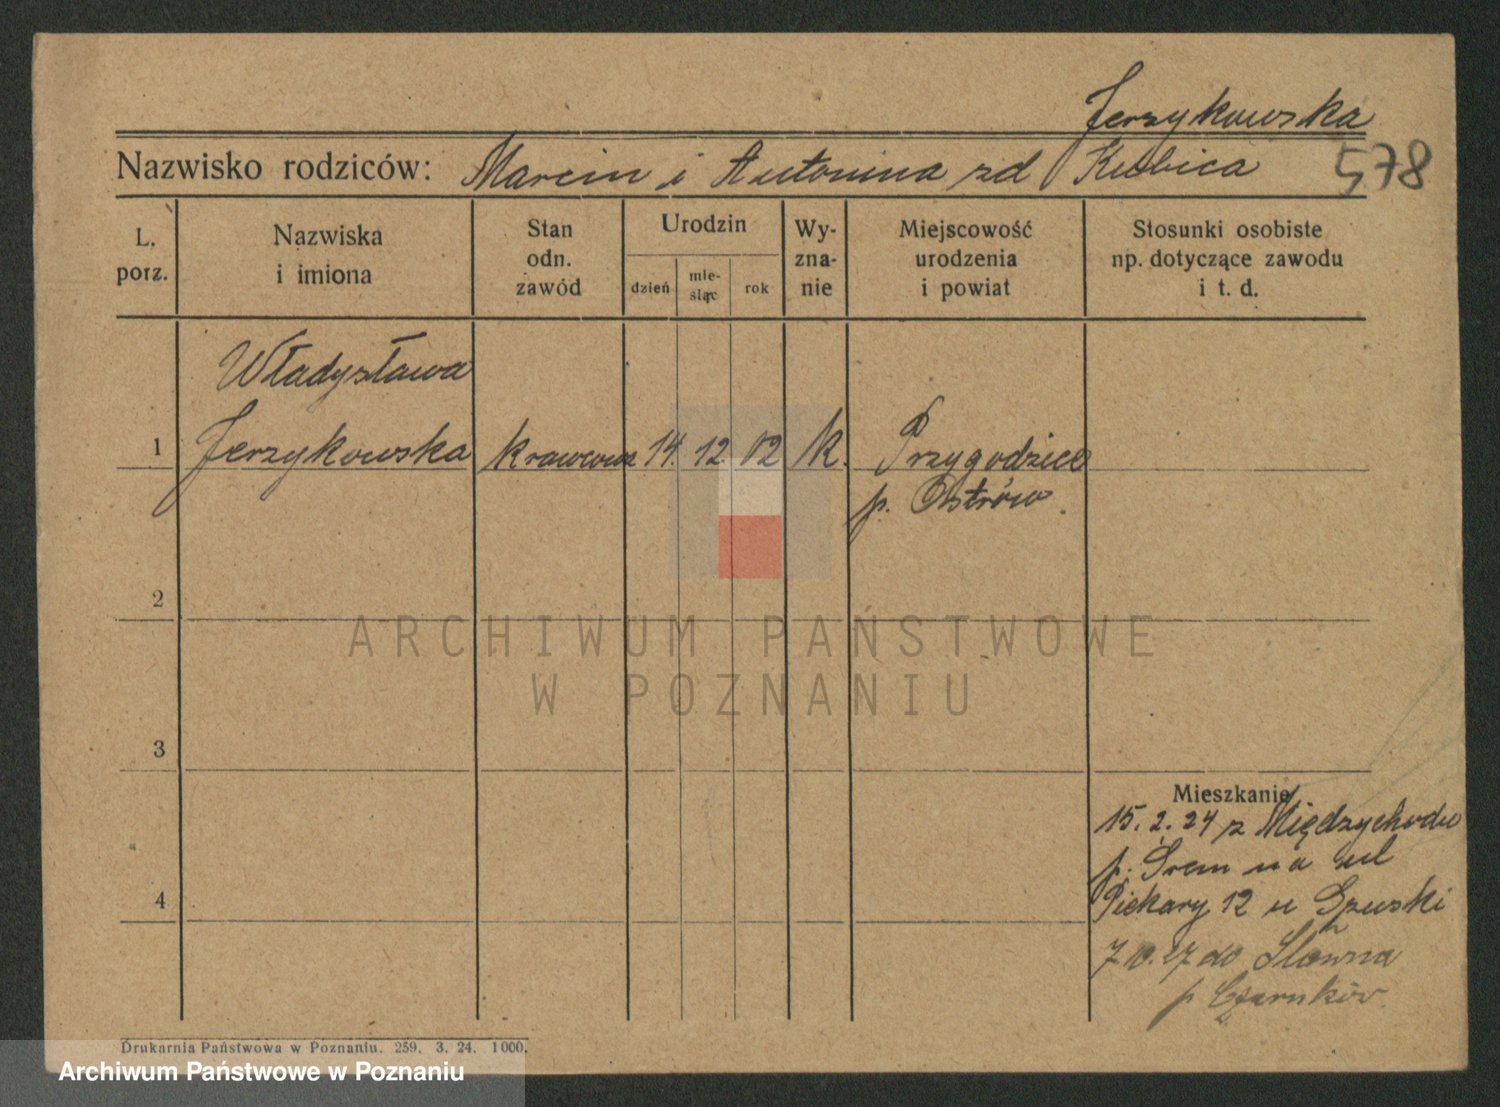 Jerzykowska
Nazwisko rodziców: Marcin i Antonina zd Kubica 578
L. porz.
Nazwiska i imiona
Stan odn. zawód
Urodzin
dzień mie- siąc rok
Wy- zna- nie
Miejscowość urodzenia i powiat
Stosunki osobiste np. dotyczące zawodu i t. d.
Władysława
1 Jerzykowska krawcowa 14. 12. 02 k. Przygodzice
p. Ostrów.
2
ARCHIWUM PAŃSTWOWE
W POZNANIU
3
Mieszkanie
15. 2. 24 z Międzychodu
p. Śrem na ul
4 Piekary 12 u
7 10. 27 do
p Czarnków.
Drukarnia Państwowa w Poznaniu. 259. 3. 24. 1000.
Archiwum Państwowe w Poznaniu